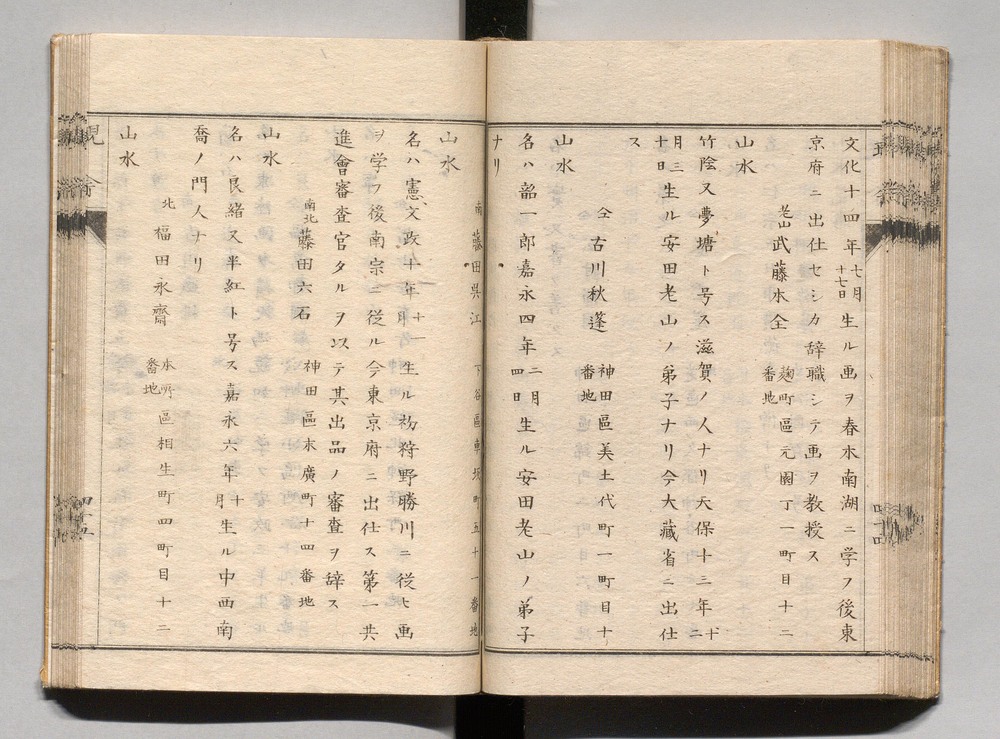 文化十四年七月十七日生ル画ヲ春木南湖ニ学フ後東
京府ニ出仕セシカ辞職シテ画ヲ教授ス
老山 武藤本全 麹町區元園丁一町目十二番地
山水
竹陰又夢塘ト号ス滋賀ノ人ナリ天保十三年十二
月三十日生ル安田老山ノ弟子ナリ今大藏省ニ出仕
ス
仝 古川秋蓬 神田區美土代町一町目十番地
山水
名ハ韶一郎嘉永四年二月四日生ル安田老山ノ弟子
ナリ
南 藤田呉江 下谷區車坂町五十一番地
山水
名ハ憲文政十年十一月生ル初狩野勝川ニ従ヒ画
ヲ学フ後南宗ニ従ル今東京府ニ出仕ス第一共
進會審査官タルヲ以テ其出品ノ審査ヲ辞ス
南北 藤田六石 神田區末廣町十四番地
山水
名ハ良緒又半紅ト号ス嘉永六年十月生ル中西南
喬ノ門人ナリ
北 福田永齋 本所區相生町四町目十二番地
山水
四十五